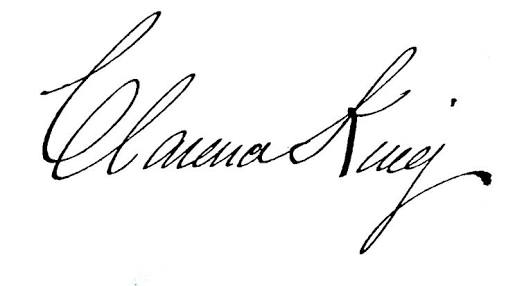 Clarence King